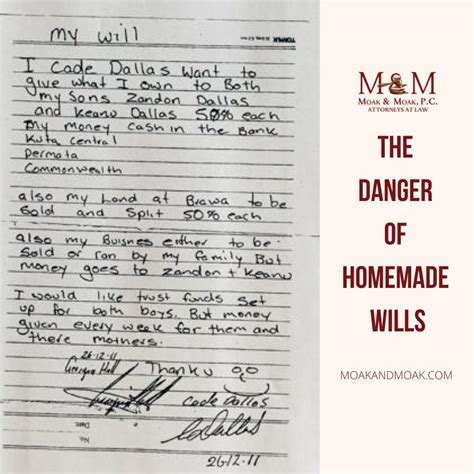 my will
I Cade Dallas Want to
give what I own to Both
my Sons Zandon Dallas
and Keanu Dallas 50% each
my money cash in the Bank
Kuta Central
Permata
Commonwealth
also my Land at Brawa to be
Sold and Split 50% each
also my Buisnes either to be
Sold or ran by my family But
money goes to Zandon + Keanu
I would like trust funds Set
up for both boys. But money
given every week for them and
there mothers.
26-12-11
Thanku
Code Dallas
26-12-11
M&M
MOAK & MOAK, P.C.
ATTORNEYS AT LAW
THE
DANGER
OF
HOMEMADE
WILLS
MOAKANDMOAK.COM